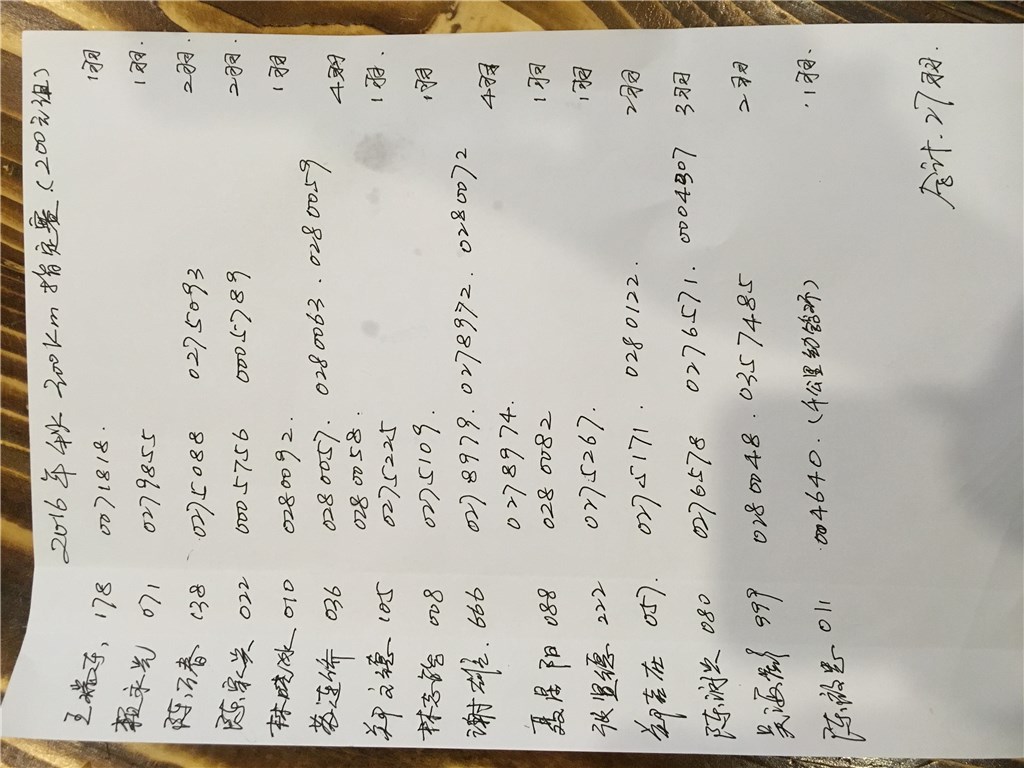 2016年秋 300Km指定赛(200元组)
王瑞 178 0071818. 1羽
赖永光 071 0279855 1羽.
陈万春 138 0275088 0275093 2羽
陈宗美 022 0005756 0005789 2羽.
林晓冰 010 0280092. 1羽
蔡连侨 036 0280057. 0280063. 0280059 4羽
0280058.
郑文德 105 0275225 1羽.
林志 008 0275109. 1羽
谢雄. 666 0278979. 0278972. 0280072 4羽
0278974.
聂居阳 088 0280082 1羽
张思德 222 0275267. 1羽
郑吉庄 057. 0275171. 0280122. 2羽
陈润兴 080 0276578 0276571. 0004307 3羽
吴海 999 0280048. 0357485 2羽
陈 011 004640.(千公里 1羽.
合计. 27羽.